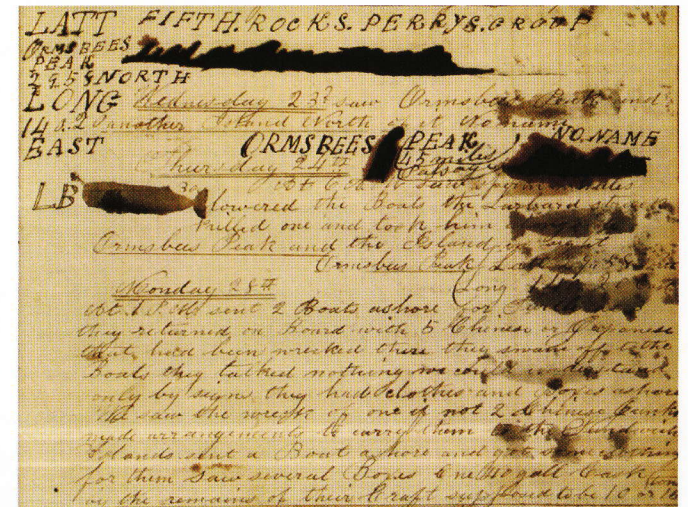 LATT FIFTH. ROCKS. PERRYS. GROUP
ORMSBEES
PEAK
NORTH
LONG Wednesday 23d saw Ormsbees Peak and
another Island North of it No name
EAST ORMSBEES PEAK NO. NAME
Thursday 24th 45 miles
At 6 A M saw sperm whales
LB lowered the Boats the Larboard
killed one and took him
Ormsbees Peak and the Island in sight
Ormsbees Peak Latt
Long
Monday 28th
At 1 P.M. sent 2 Boats ashore for
they returned on Board with 5 Chinese or Japanese
that had been wrecked there they swam off to the
Boats they talked nothing we could understand
only by signs they had clothes and ashore
We saw the wreck of one if not 2 Chinese Junks
made arrangements to carry them to the Sandwich
Islands sent a Boat ashore and got some clothing
for them saw several Bones One 40 gall Cask
by the remains of their Craft supposed to be 10 or